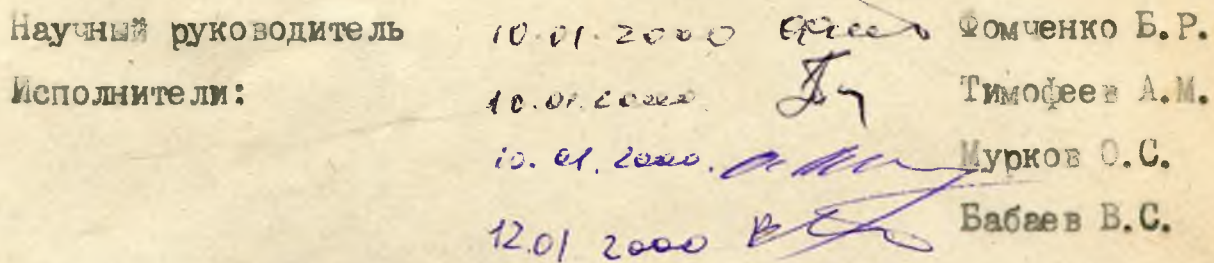 Научный руководитель 10.01.2000 Фомченко Б.Р.
Исполнители: 10.01.2000 Тимофеев А.М.
10.01.2000. Мурков О.С.
12.01 2000 Бабаев В.С.